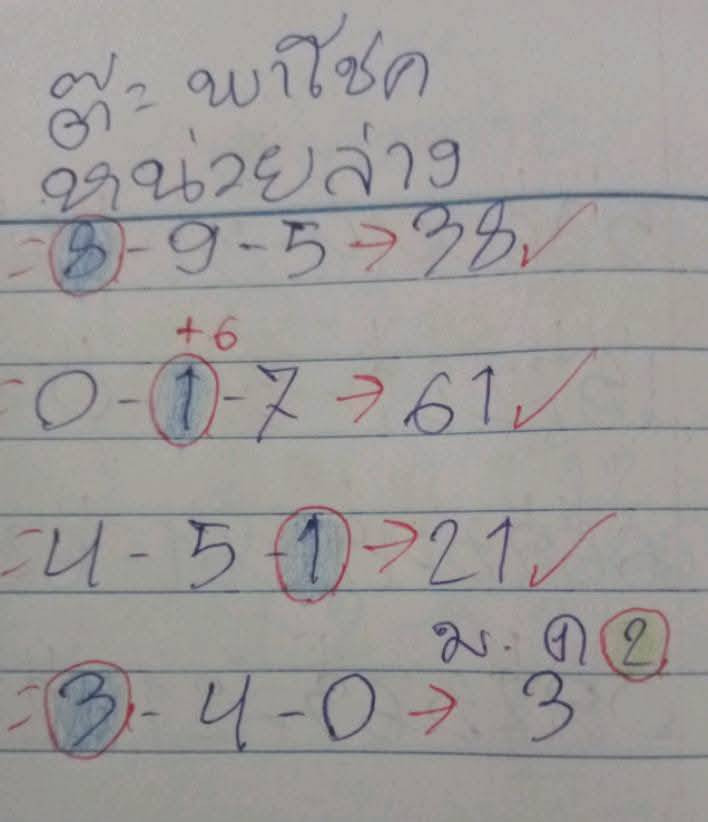 ต๊ะ พาโชค
หน่วยล่าง
= 8 - 9 - 5 → 38 ✓
+6
= 0 - 1 - 7 → 61 ✓
= 4 - 5 - 1 → 21 ✓
ม. ค 2
= 3 - 4 - 0 → 3